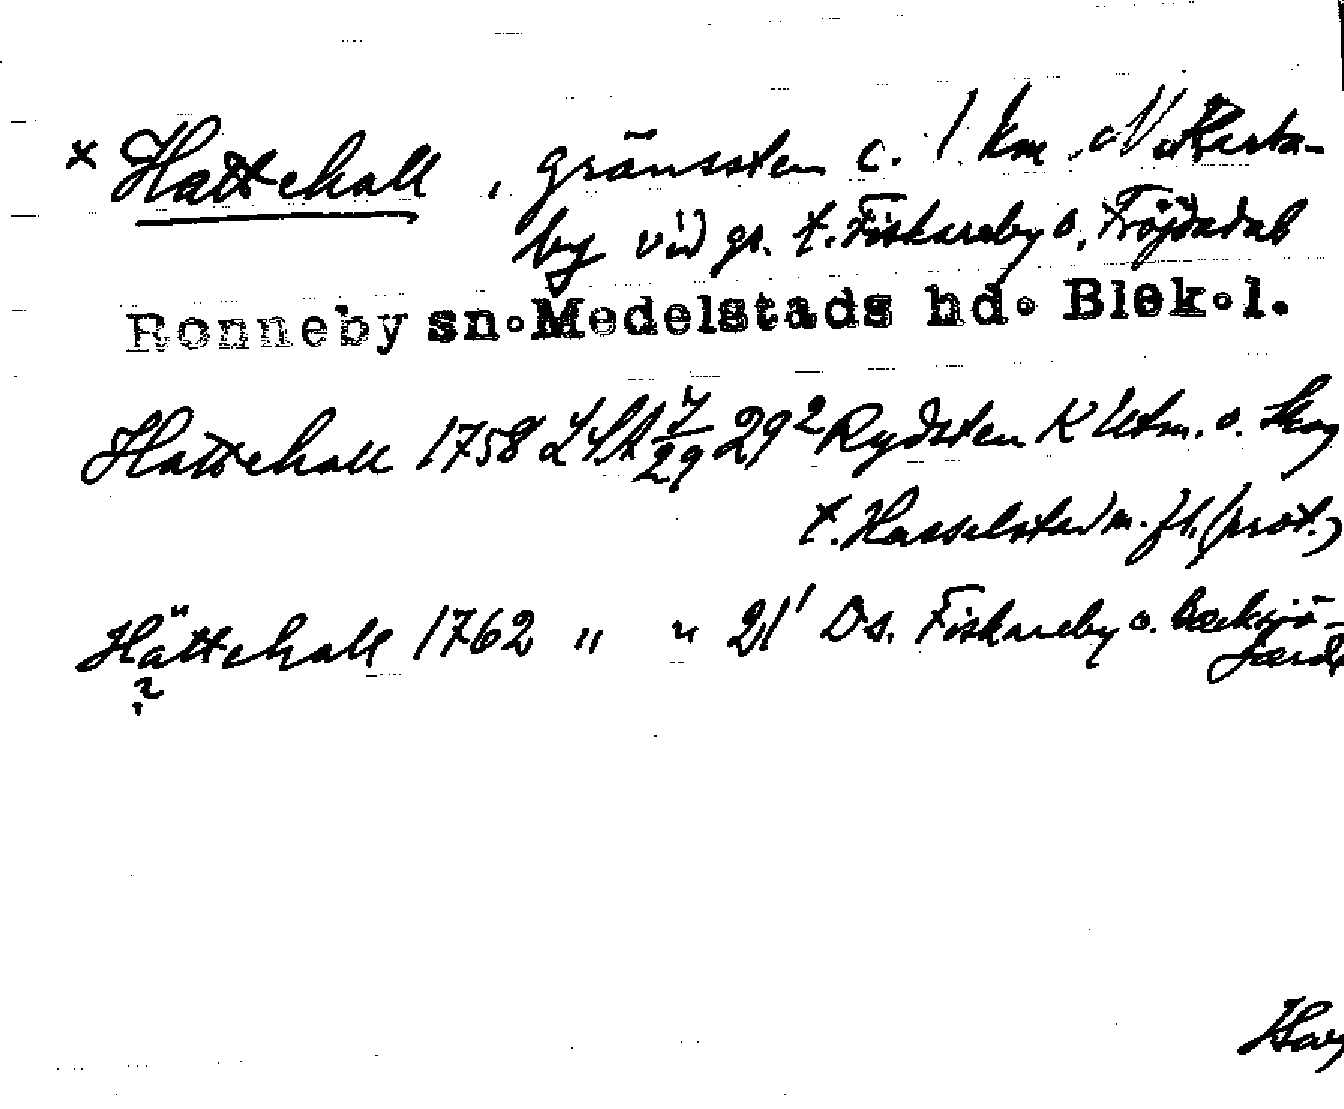 × Hattehall, gränssten c. 1 km N Karta-
by vid gr. t. Fiskareby o. Fröjdadal
Ronneby sn.Medelstads hd. Blek.l.
Hattehall 1758 LSA 7/29 29² Rydsten K Utm. o. Skog
t. Hasselstad m. fl. (prot.)
Hättehall 1762 " " 21' Ds. Fiskareby o.
?